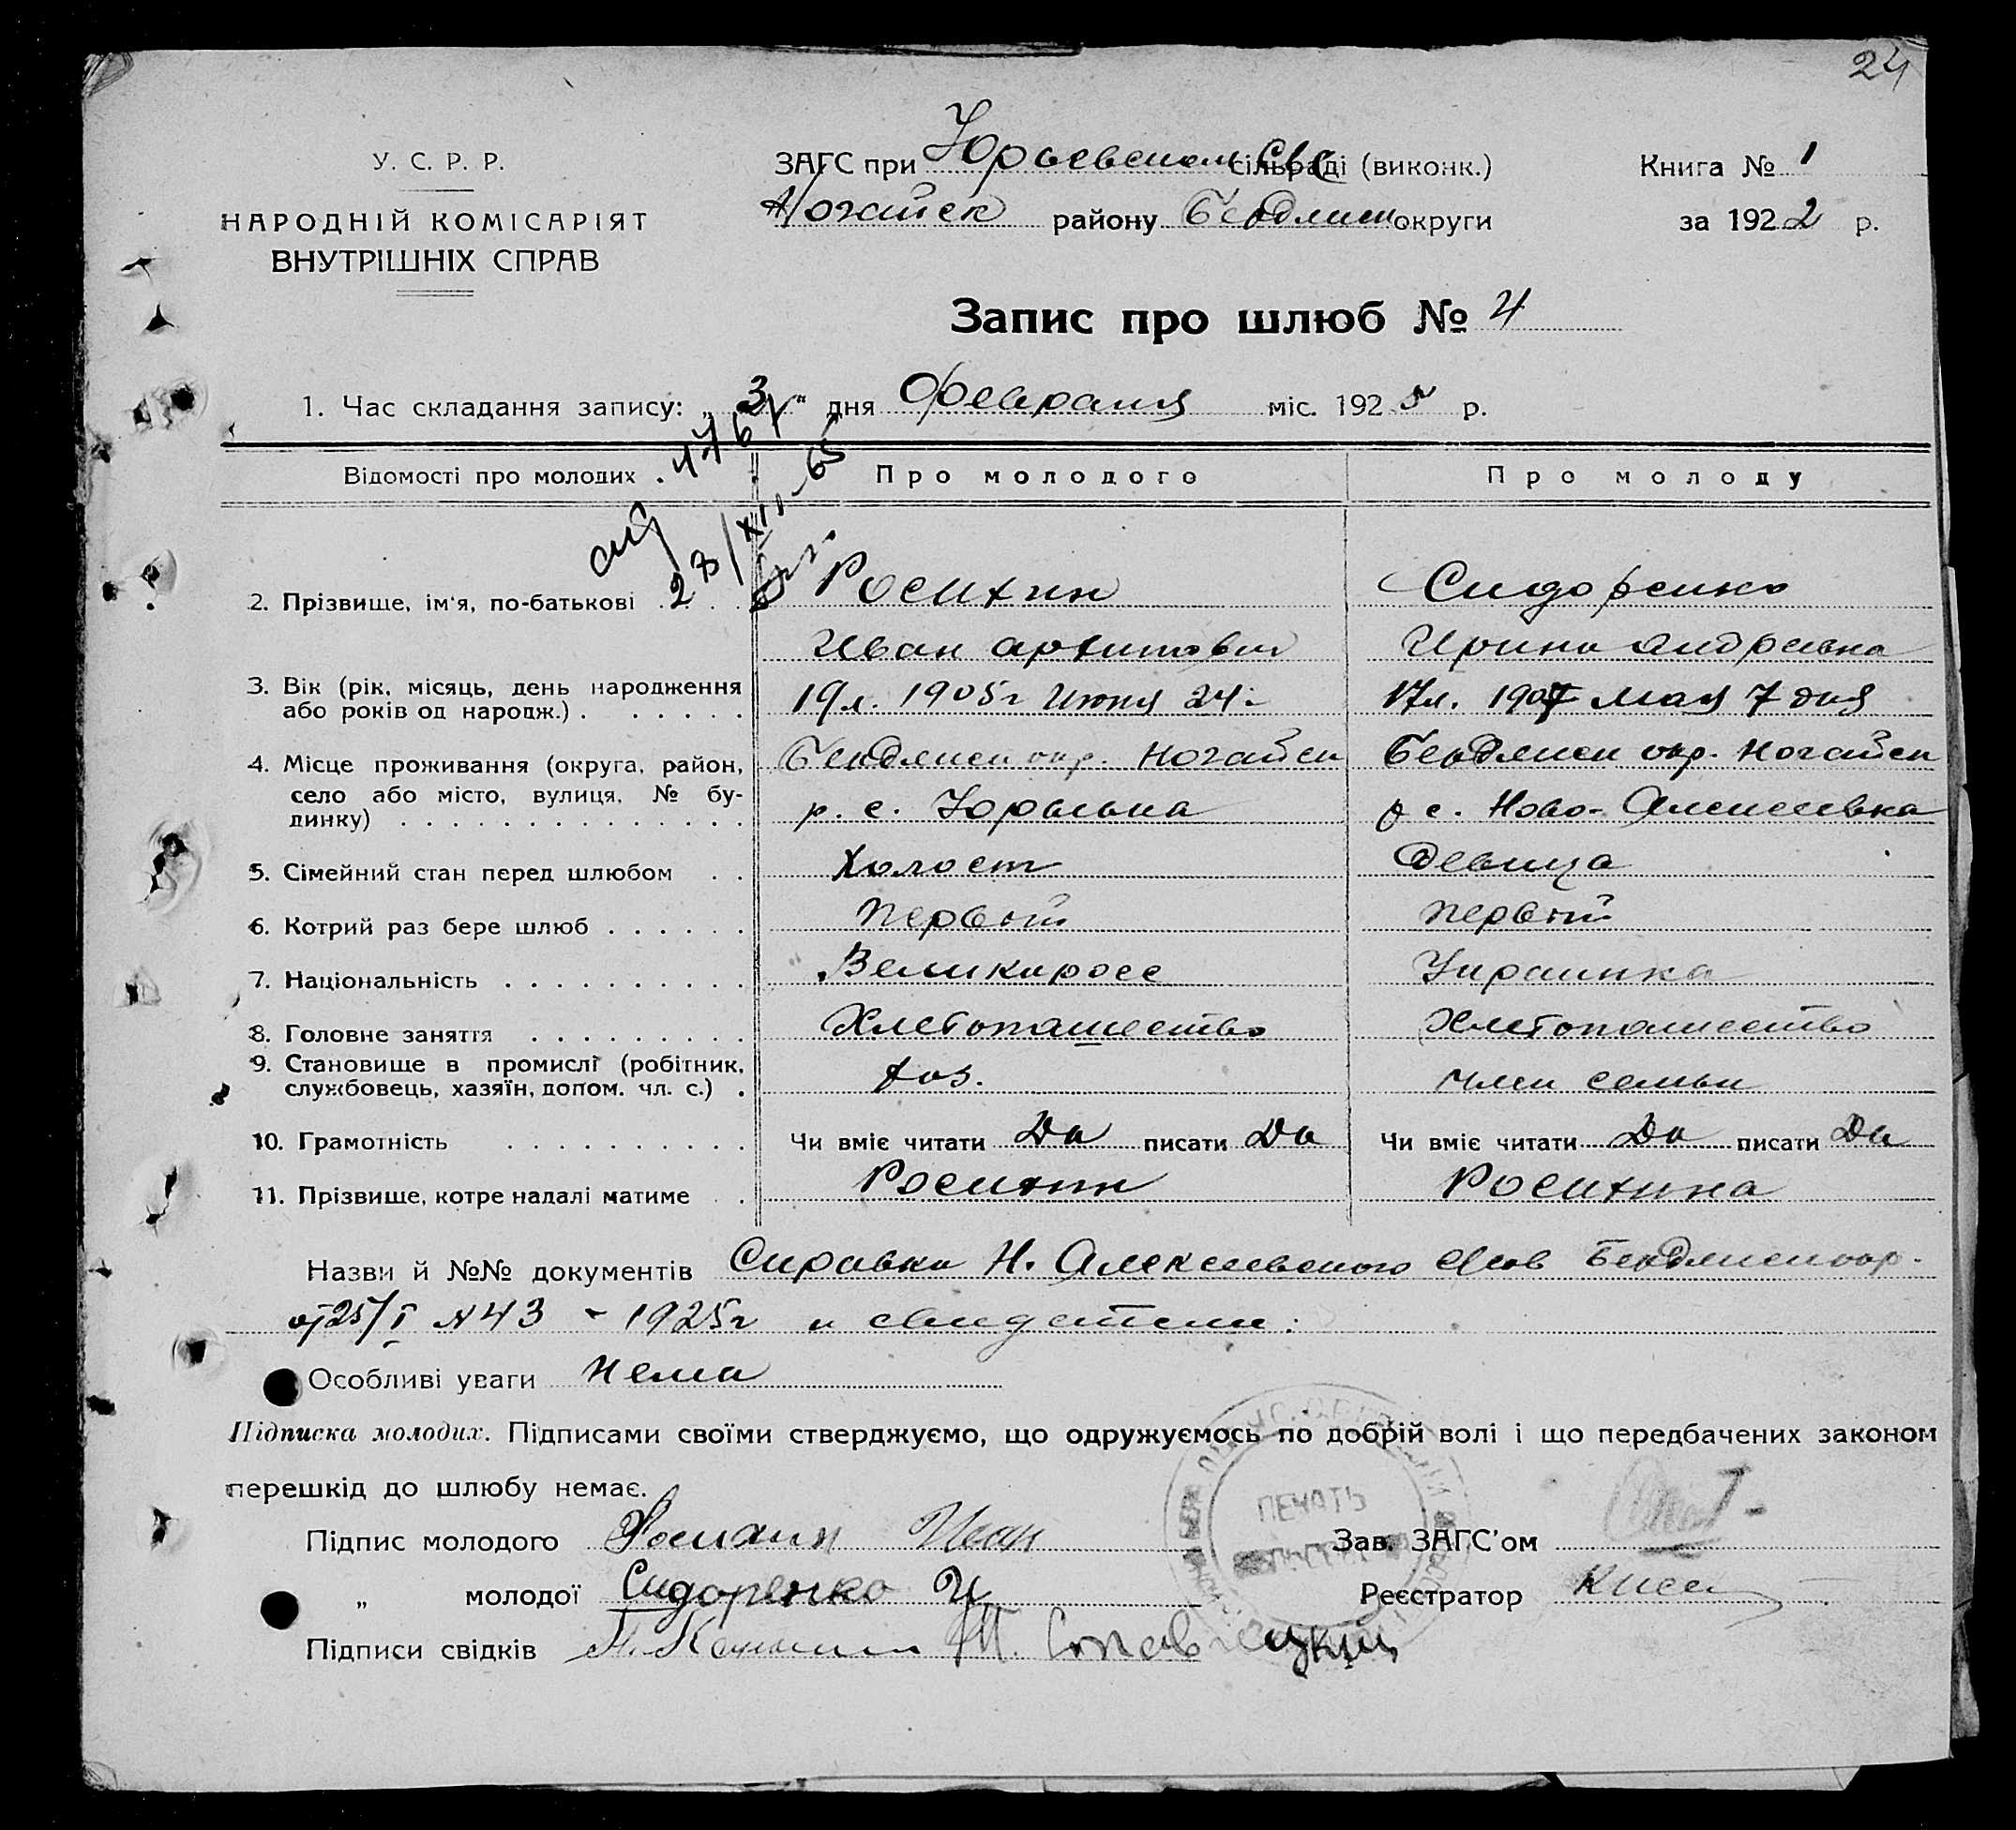 24
У. С. Р. Р.
НАРОДНІЙ КОМІСАРІЯТ
ВНУТРІШНІХ СПРАВ
ЗАГС при Юрьевском сільраді (виконк.)
Ногайск району Бердянск округи
Книга № 1
за 1922 р.
Запис про шлюб № 4
1. Час складання запису: „3“ дня Февраля міс. 1925 р.
Відомості про молодих . Про молодого Про молоду
23/XII-65
2. Прізвище, ім'я, по-батькові . . . . Росихин Сидоренко
Иван Архипович Ирина Андреевна
3. Вік (рік, місяць, день народження 19 л. 1905 г Июня 24 17 л. 1907 Мая 7 дня
або років од народж.) . . . . . .
4. Місце проживання (округа, район, Бердянск окр. Ногайск Бердянск окр. Ногайск
село або місто, вулиця, № бу- р. с. Юрьевка р с. Ново-Алексеевка
динку) . . . . . . . . . . . . . .
5. Сімейний стан перед шлюбом . . Холост Девица
6. Котрий раз бере шлюб . . . . . . Первый Первый
7. Національність . . . . . . . . . . Великоросс Украинка
8. Головне заняття . . . . . . . . . Хлебопашество Хлебопашество
9. Становище в промислі (робітник, хоз. член семьи
службовець, хазяїн, допом. чл. с.) .
10. Грамотність . . . . . . . . . . Чи вміє читати Да писати Да Чи вміє читати Да писати Да
11. Прізвище, котре надалі матиме . . Росихин Росихина
Назви й №№ документів Справка Н. Алексеевского Бердянск окр.
от 25/I №43 - 1925 г и свидетели:
Особливі уваги Нема
Підписка молодих. Підписами своїми стверджуємо, що одружуємось по добрій волі і що передбачених законом
перешкід до шлюбу немає.
ПЕЧАТЬ
Підпис молодого Росихин Иван Зав. ЗАГС'ом
„ молодої Сидоренко И Реєстратор
Підписи свідків